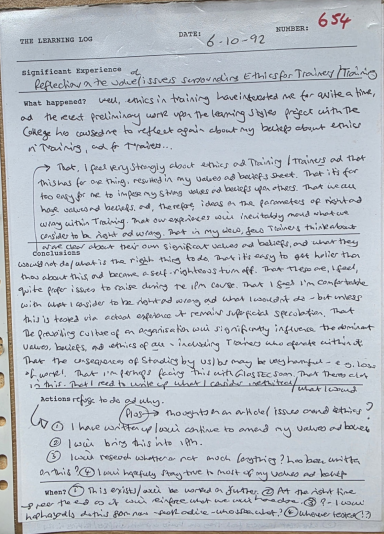 654
THE LEARNING LOG DATE: 6-10-92 NUMBER:
Significant Experience of
Reflecting on the values issues surrounding Ethics for Trainers/Training
What happened? Well, ethics in training have interested me for quite a time,
and the recent preliminary work upon the Learning Styles project with the
College has caused me to reflect again about my beliefs about ethics
in Training, and for Trainers...
That, I feel very strongly about ethics and Training/Trainers and that
this has for one thing, resulted in my values and beliefs sheet. That it's far
too easy for me to impose my strong values and beliefs upon others. That we all
have values and beliefs, and, therefore ideas on the parameters of right and
wrong within Training. That our experiences will inevitably mould what we
consider to be right and wrong. That in my view, few Trainers think about
or are clear about their own significant values and beliefs, and what they
Conclusions
would not do/what is the right thing to do. That it's easy to get holier than
thou about this, and become a self-righteous turn off. That these are, I feel,
quite proper issues to raise during the IPM course. That I feel I'm comfortable
with what I consider to be right and wrong and what I wouldn't do - but unless
this is tested via actual experience it remains superficial speculation. That
the prevailing culture of an organisation will significantly influence the dominant
values, beliefs, and ethics of all - including Trainers who operate within it.
That the consequences of standing by us/bs may be very harmful - e.g. loss
of work!. That I'm perhaps facing this with soon. That there's a lot
in this. That I need to write up what I consider /what I would
Actions refuse to do and why.
Plus → thoughts on an article/issues around ethics?
① I have written up/will continue to amend my values and beliefs
② I will bring this into IPM.
③ I will research whether or not much/anything? has been written
on this? ④ I will hopefully stay true to most of my values and beliefs
When? ① This exists/will be worked on further. ② At the right time
③ ?- I will
④ whenever tested (!?)